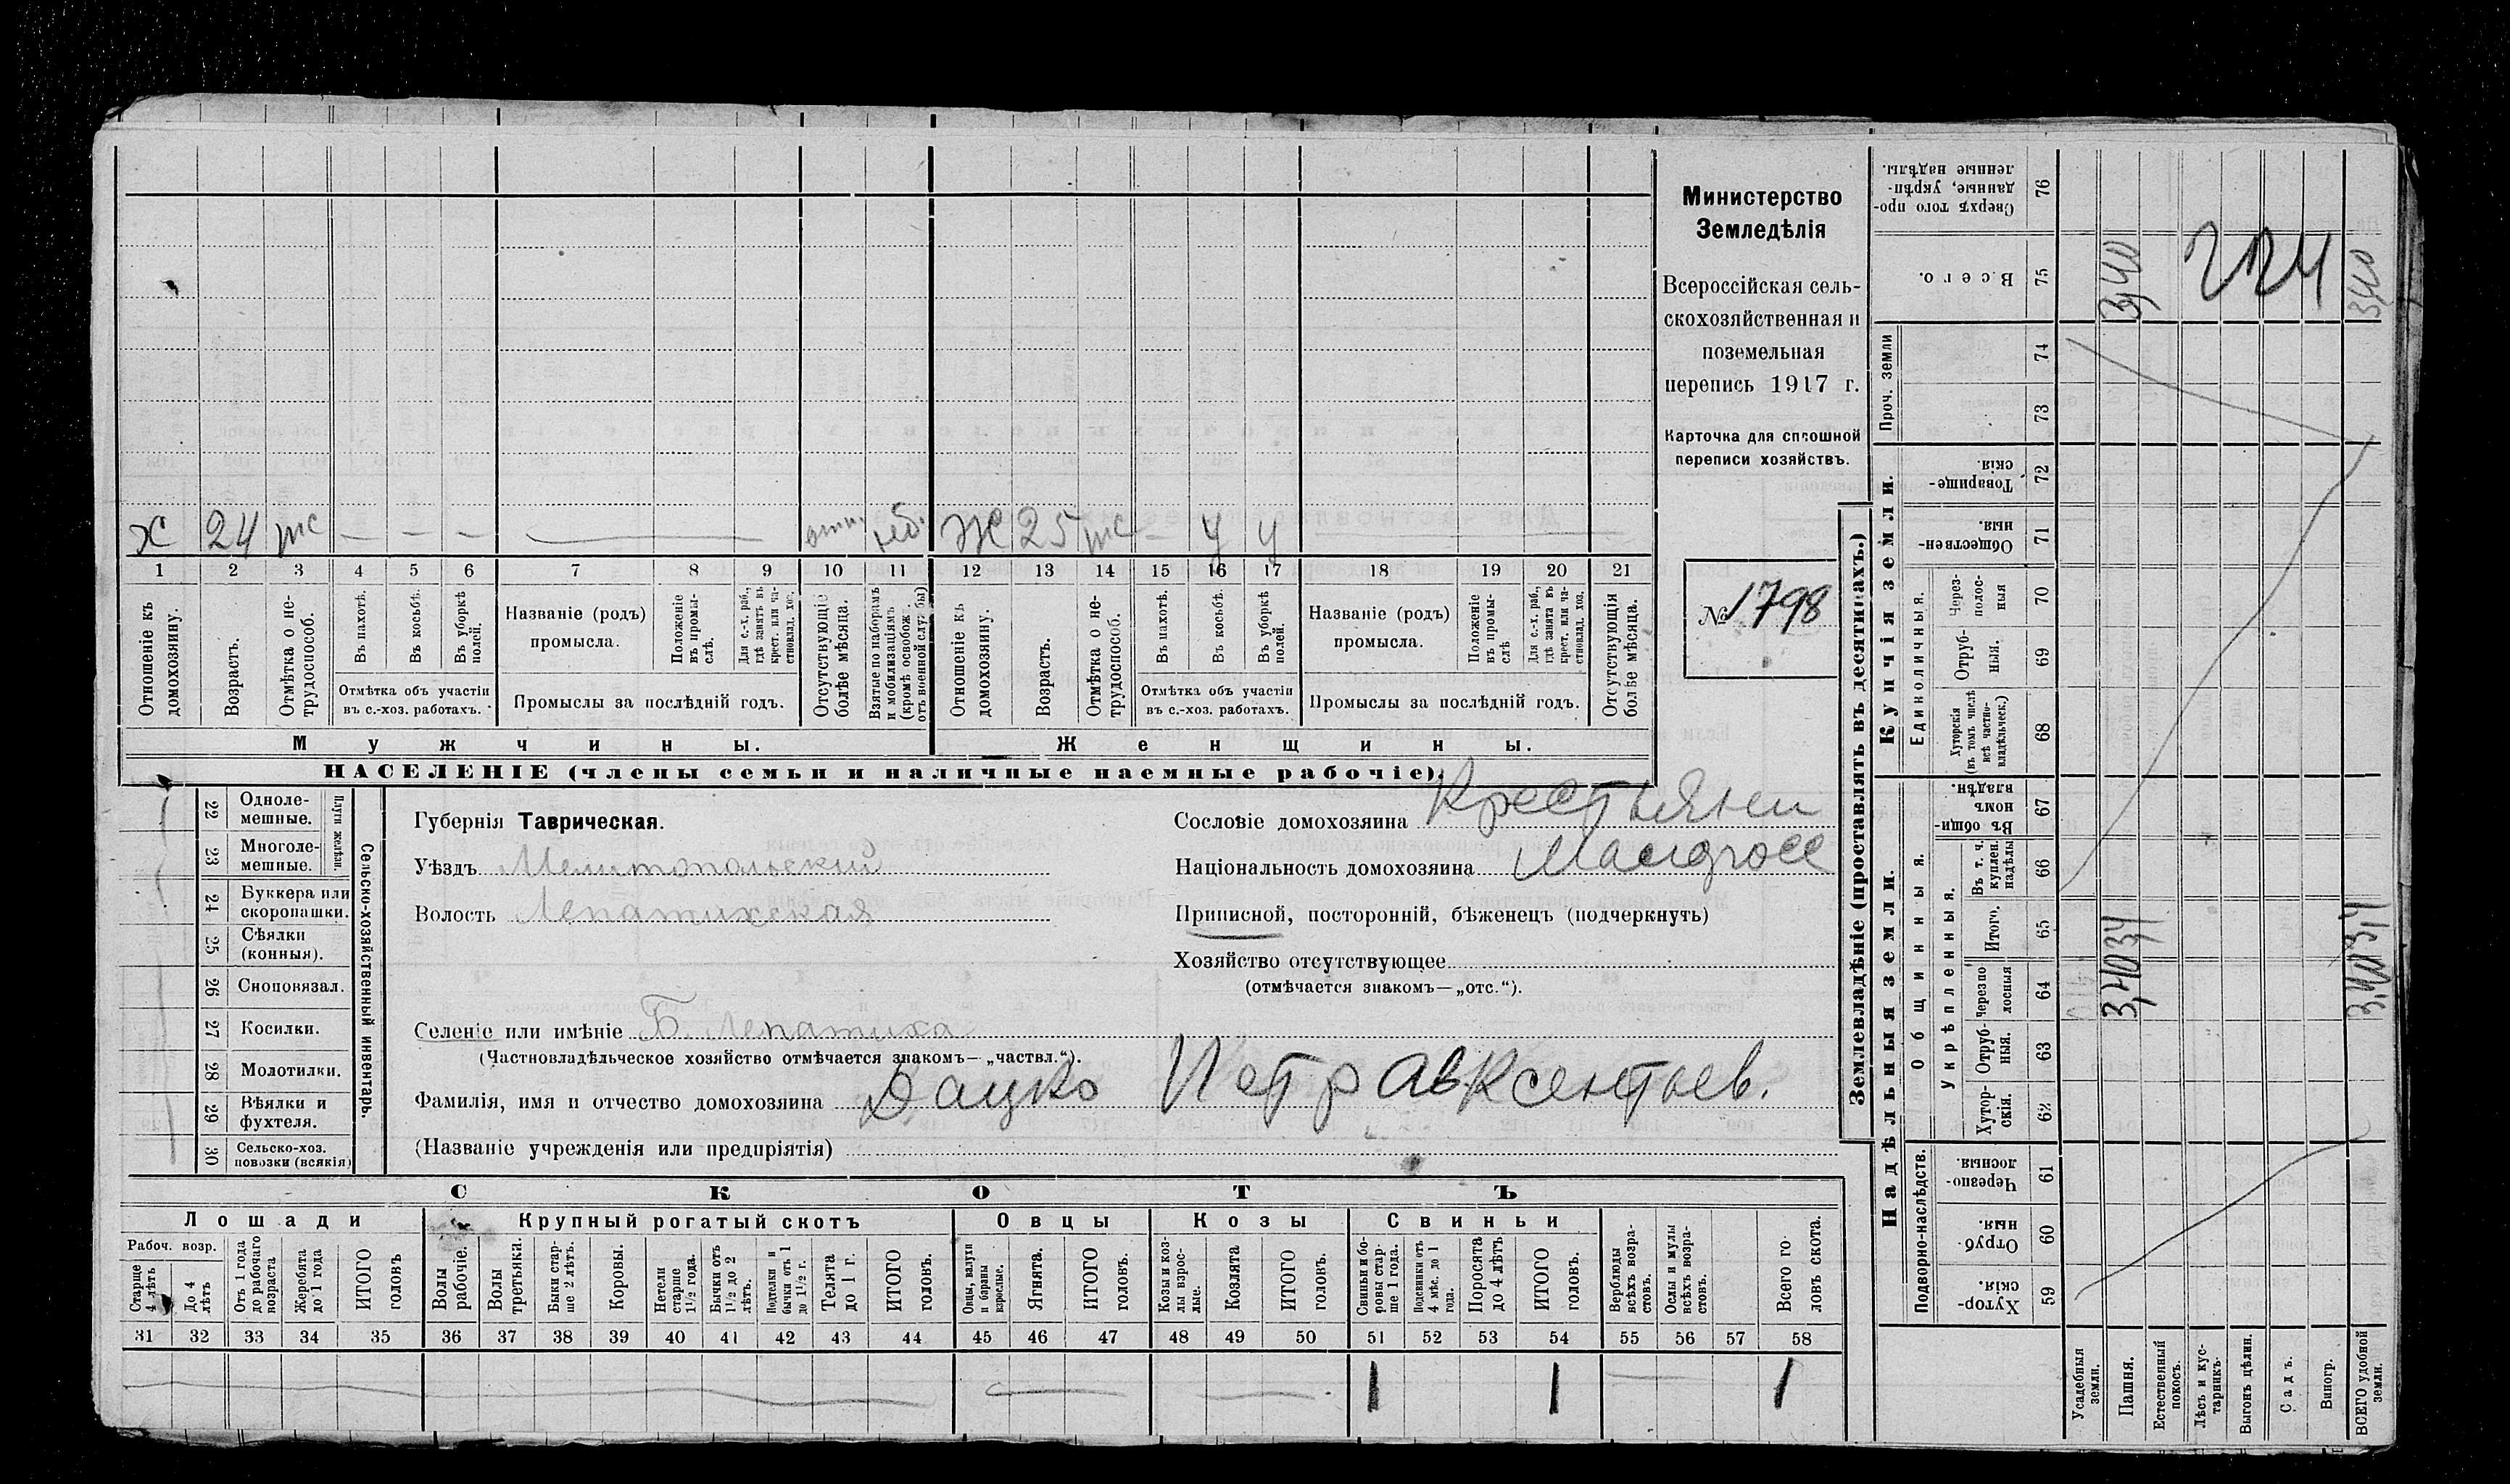 х 24 тс — — — — отп. неб. Ж 25 тс — у у —
1 2 3 4 5 6 7 8 9 10 11 12 13 14 15 16 17 18 19 20 21
Отношеніе къ домохозяину.
Возрастъ.
Отмѣтка о не-трудоспособ.
Въ пахотѣ.
Въ косьбѣ.
Въ уборкѣ полей.
Отмѣтка объ участіи
въ с.-хоз. работахъ.
Названіе (родъ)
промысла.
Положеніе въ промы-слѣ.
Для с.-х. раб., гдѣ занятъ въ крест. или ча-стновлад. хоз.
Промыслы за послѣдній годъ.
Отсутствующіе болѣе мѣсяца.
Взятые по наборамъ и мобилизаціямъ (кромѣ освобож. отъ военной службы)
Отношеніе къ домохозяину.
Возрастъ.
Отмѣтка о не-трудоспособ.
Въ пахотѣ.
Въ косьбѣ.
Въ уборкѣ полей.
Отмѣтка объ участіи
въ с.-хоз. работахъ.
Названіе (родъ)
промысла.
Положеніе въ промы-слѣ
Для с.-х. раб., гдѣ занятъ въ крест. или ча-стновлад. хоз.
Промыслы за послѣдній годъ.
Отсутствующія болѣе мѣсяца.
Мужчины.
Женщины.
НАСЕЛЕНІЕ (члены семьи и наличные наемные рабочіе).
Министерство
Земледѣлія
Всероссійская сель-
скохозяйственная и
поземельная
перепись 1917 г.
Карточка для сплошной
переписи хозяйствъ.
№ 1798
Сельско-хозяйственный инвентарь.
Плуги желѣзн.
22 Одноле-мешные.
23 Многоле-мешные.
24 Буккера или скоропашки.
25 Сѣялки (конныя).
26 Сноповязал.
27 Косилки.
28 Молотилки.
29 Вѣялки и фухтеля.
30 Сельско-хоз. повозки (всякія)
Губернія Таврическая.
Уѣздъ Мелитопольский
Волость Лепатихская
Селеніе или имѣніе Б. Лепатиха
(Частновладѣльческое хозяйство отмѣчается знакомъ—„частвл.“).
Сословіе домохозяина Крестьянин
Національность домохозяина Малорос
Приписной, посторонній, бѣженецъ (подчеркнуть)
Хозяйство отсутствующее
(отмѣчается знакомъ—„отс.“).
Фамилія, имя и отчество домохозяина Дацко Петр Авксентьев.
(Названіе учрежденія или предпріятія)
СКОТЪ
Лошади Крупный рогатый скотъ Овцы Козы Свиньи
Рабоч. возр.
Старше 4 лѣтъ
До 4 лѣтъ
Отъ 1 года до рабочаго возраста
Жеребята до 1 года
ИТОГО головъ
Волы рабочіе.
Волы третьяка.
Быки стар-ше 2 лѣтъ.
Коровы.
Нетели старше 1½ года.
Бычки отъ 1½ до 2 лѣтъ.
Подтелки и бычки отъ 1 до 1½ г.
Телята до 1 г.
ИТОГО головъ.
Овцы, валухи и бараны взрослые.
Ягнята.
ИТОГО головъ.
Козы и коз-лы взрос-лые.
Козлята
ИТОГО головъ.
Свиньи и бо-ровы стар-ше 1 года.
Подсвинки отъ 4 мѣс. до 1 года.
Поросята до 4 лѣтъ
ИТОГО головъ.
Верблюды всѣхъ возра-стовъ.
Ослы и мулы всѣхъ возра-стовъ.
Всего го-ловъ скота.
31 32 33 34 35 36 37 38 39 40 41 42 43 44 45 46 47 48 49 50 51 52 53 54 55 56 57 58
1 1 1
Землевладѣніе (проставлять въ десятинахъ.)
Сверхъ того про-данные, укрѣп-ленные надѣлы. 76
Всего. 75 3,40 224 3,40
Проч. земли 74
73
Купчія земли.
Товарище-скія. 72
Обществен-ныя. 71
Единоличныя.
Черезполос-ныя 70
Отруб-ныя. 69
Хуторскія (въ томъ числѣ всѣ частно-владѣльческ.) 68
Надѣльныя земли.
Общинныя.
Въ общин-номъ владѣн. 67
Укрѣпленныя.
Въ т. ч. куплен. надѣлы 66
Итого. 65
Черезпо-лосныя 64
Отруб-ныя. 63
Хутор-скія. 62
Подворно-наслѣдств.
Черезпо-лосныя. 61
Отруб-ныя. 60
Хутор-скія. 59
Усадебныя земли.
Пашня.
Естественный покосъ.
Лѣсъ и кус-тарникъ.
Выгонъ цѣлин.
Садъ.
Виногр.
ВСЕГО удобной земли.